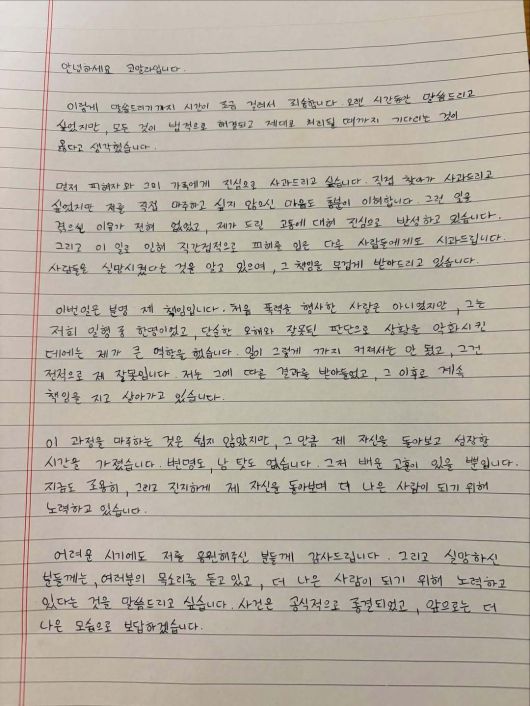 안녕하세요 코알라입니다.
이렇게 말씀드리기까지 시간이 조금 걸려서 죄송합니다. 오랜 시간동안 말씀드리고
싶었지만, 모든 것이 법적으로 해결되고 제대로 처리될 때까지 기다리는 것이
옳다고 생각했습니다.
먼저 피해자와 그의 가족에게 진심으로 사과드리고 싶습니다. 직접 찾아가 사과드리고
싶었지만 저를 직접 마주하고 싶지 않으신 마음도 충분히 이해합니다. 그런 일을
겪으실 이유가 전혀 없었고, 제가 드린 고통에 대해 진심으로 반성하고 있습니다.
그리고 이 일로 인해 직간접적으로 피해를 입은 다른 사람들에게도 사과드립니다.
사람들을 실망시켰다는 것을 알고 있으며, 그 책임을 무겁게 받아드리고 있습니다.
이번일은 분명 제 책임입니다. 처음 폭력을 행사한 사람은 아니었지만, 그는
저희 일행 중 한명이었고, 단순한 오해와 잘못된 판단으로 상황을 악화시킨
데에는 제가 큰 역할을 했습니다. 일이 그렇게 까지 커져서는 안 됐고, 그건
전적으로 제 잘못입니다. 저는 그에 따른 결과를 받아들였고, 그 이후로 계속
책임을 지고 살아가고 있습니다.
이 과정을 마주하는 것은 쉽지 않았지만, 그 만큼 제 자신을 돌아보고 성장한
시간을 가졌습니다. 변명도, 남 탓도 없습니다. 그저 배운 교훈이 있을 뿐입니다.
지금도 조용히, 그리고 진지하게 제 자신을 돌아보며 더 나은 사람이 되기 위해
노력하고 있습니다.
어려운 시기에도 저를 응원해주신 분들께 감사드립니다. 그리고 실망하신
분들께는, 여러분의 목소리를 듣고 있고, 더 나은 사람이 되기 위해 노력하고
있다는 것을 말씀드리고 싶습니다. 사건은 공식적으로 종결되었고, 앞으로는 더
나은 모습으로 보답하겠습니다.